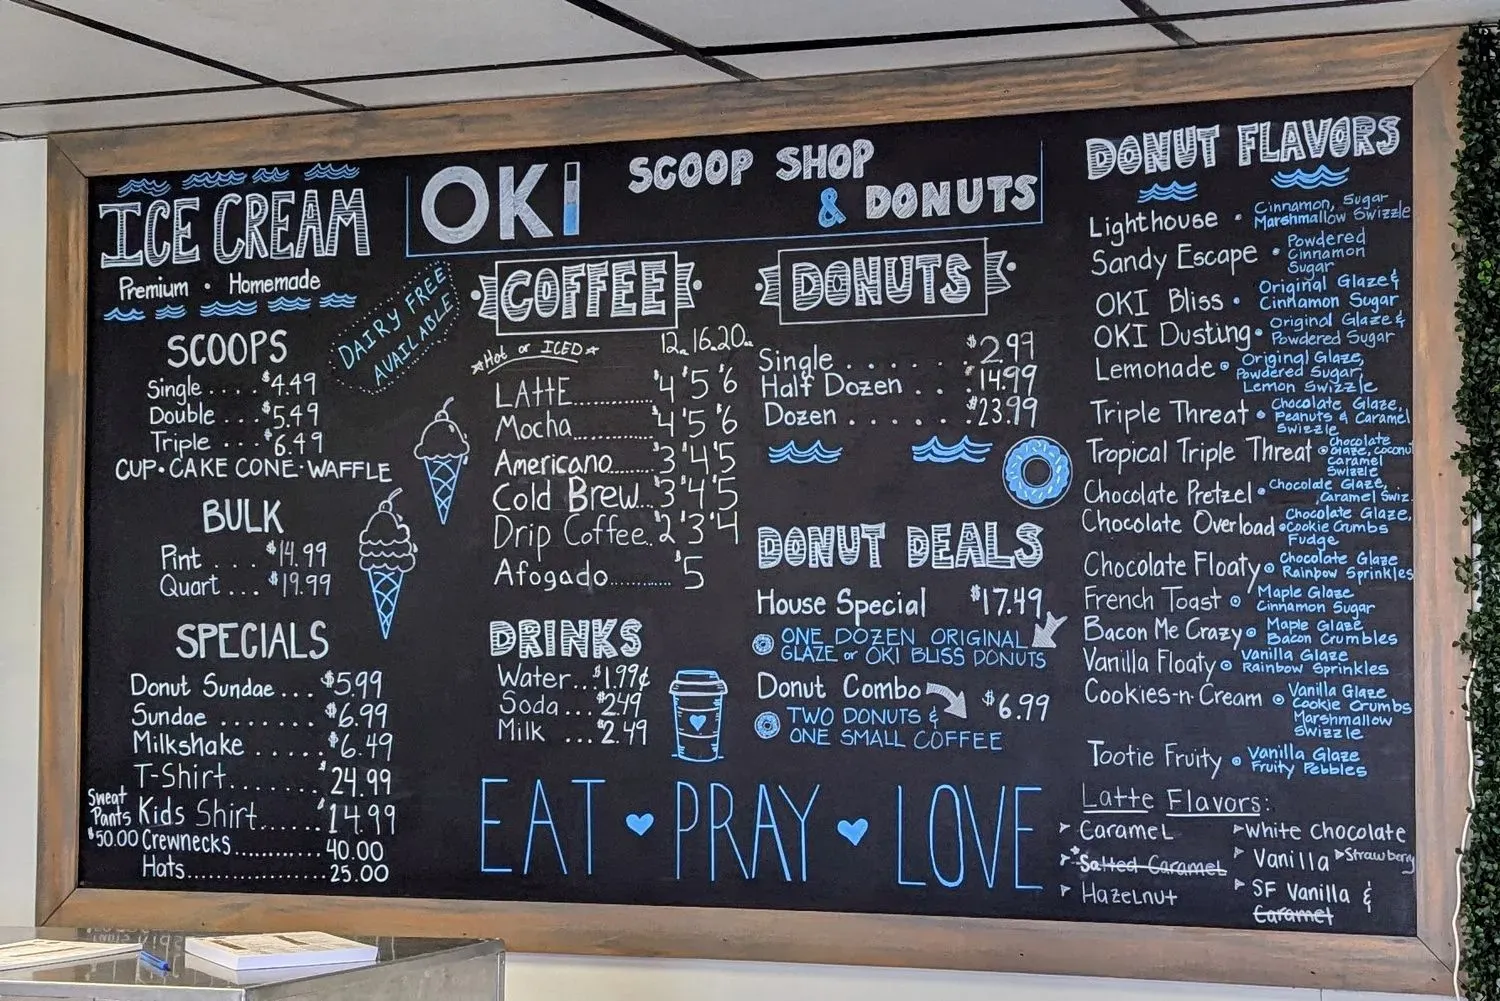 ICE CREAM
Premium · Homemade
DAIRY FREE
AVAILABLE
SCOOPS
Single .... $4.49
Double ... $5.49
Triple ... $6.49
CUP · CAKE CONE · WAFFLE
BULK
Pint .... $14.99
Quart .... $19.99
SPECIALS
Donut Sundae ... $5.99
Sundae ....... $6.99
Milkshake ..... $6.49
T-Shirt....... $24.99
Kids Shirt...... $14.99
Crewnecks............ 40.00
Hats.................... 25.00
Sweat
Pants
$50.00
OKI SCOOP SHOP
& DONUTS
COFFEE
Hot or ICED
12oz 16oz 20oz
LATTE.............. $4 $5 $6
Mocha.............. $4 $5 $6
Americano........ $3 $4 $5
Cold Brew... $3 $4 $5
Drip Coffee.. $2 $3 $4
Afogado........... $5
DRINKS
Water... $1.99¢
Soda ... $2.49
Milk ... $2.49
DONUTS
Single ....... $2.99
Half Dozen .... $14.99
Dozen ....... $23.99
DONUT DEALS
House Special $17.49
ONE DOZEN ORIGINAL
GLAZE or OKI BLISS DONUTS
Donut Combo $6.99
TWO DONUTS &
ONE SMALL COFFEE
EAT PRAY LOVE
DONUT FLAVORS
Lighthouse · Cinnamon, Sugar
Marshmallow Swizzle
Sandy Escape · Powdered
Cinnamon
Sugar
OKI Bliss · Original Glaze &
Cinnamon Sugar
OKI Dusting · Original Glaze &
Powdered Sugar
Lemonade · Original Glaze,
Powdered Sugar,
Lemon Swizzle
Triple Threat · Chocolate Glaze,
Peanuts & Caramel
Swizzle
Tropical Triple Threat · Chocolate
Glaze, coconut
Caramel
Swizzle
Chocolate Pretzel · Chocolate Glaze,
Caramel Swiz
Chocolate Overload · Chocolate Glaze,
Cookie Crumbs
Fudge
Chocolate Floaty · Chocolate Glaze
Rainbow Sprinkles
French Toast · Maple Glaze
Cinnamon Sugar
Bacon Me Crazy · Maple Glaze
Bacon Crumbles
Vanilla Floaty · Vanilla Glaze
Rainbow Sprinkles
Cookies-n-Cream · Vanilla Glaze
Cookie Crumbs
Marshmallow
Swizzle
Tootie Fruity · Vanilla Glaze
Fruity Pebbles
Latte Flavors:
Caramel
Salted Caramel
Hazelnut
White Chocolate
Vanilla Strawberry
SF Vanilla &
Caramel